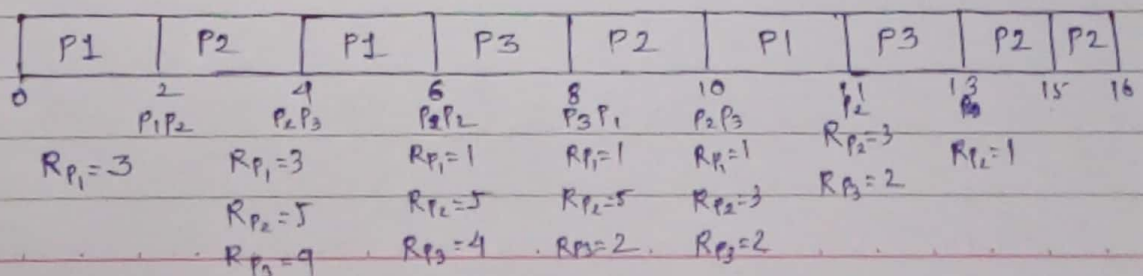 P1 P2 P1 P3 P2 P1 P3 P2 P2
0 2 4 6 8 10 11 13 15 16
P1P2 P2P3 P2 P3P1 P2P3 P2
RP1=3 RP1=3 RP1=1 RP1=1 RP1=1 RP2=3 RP2=1
RP2=5 RP2=5 RP2=5 RP2=3 RP3=2
RP3=4 RP3=2 RP3=2